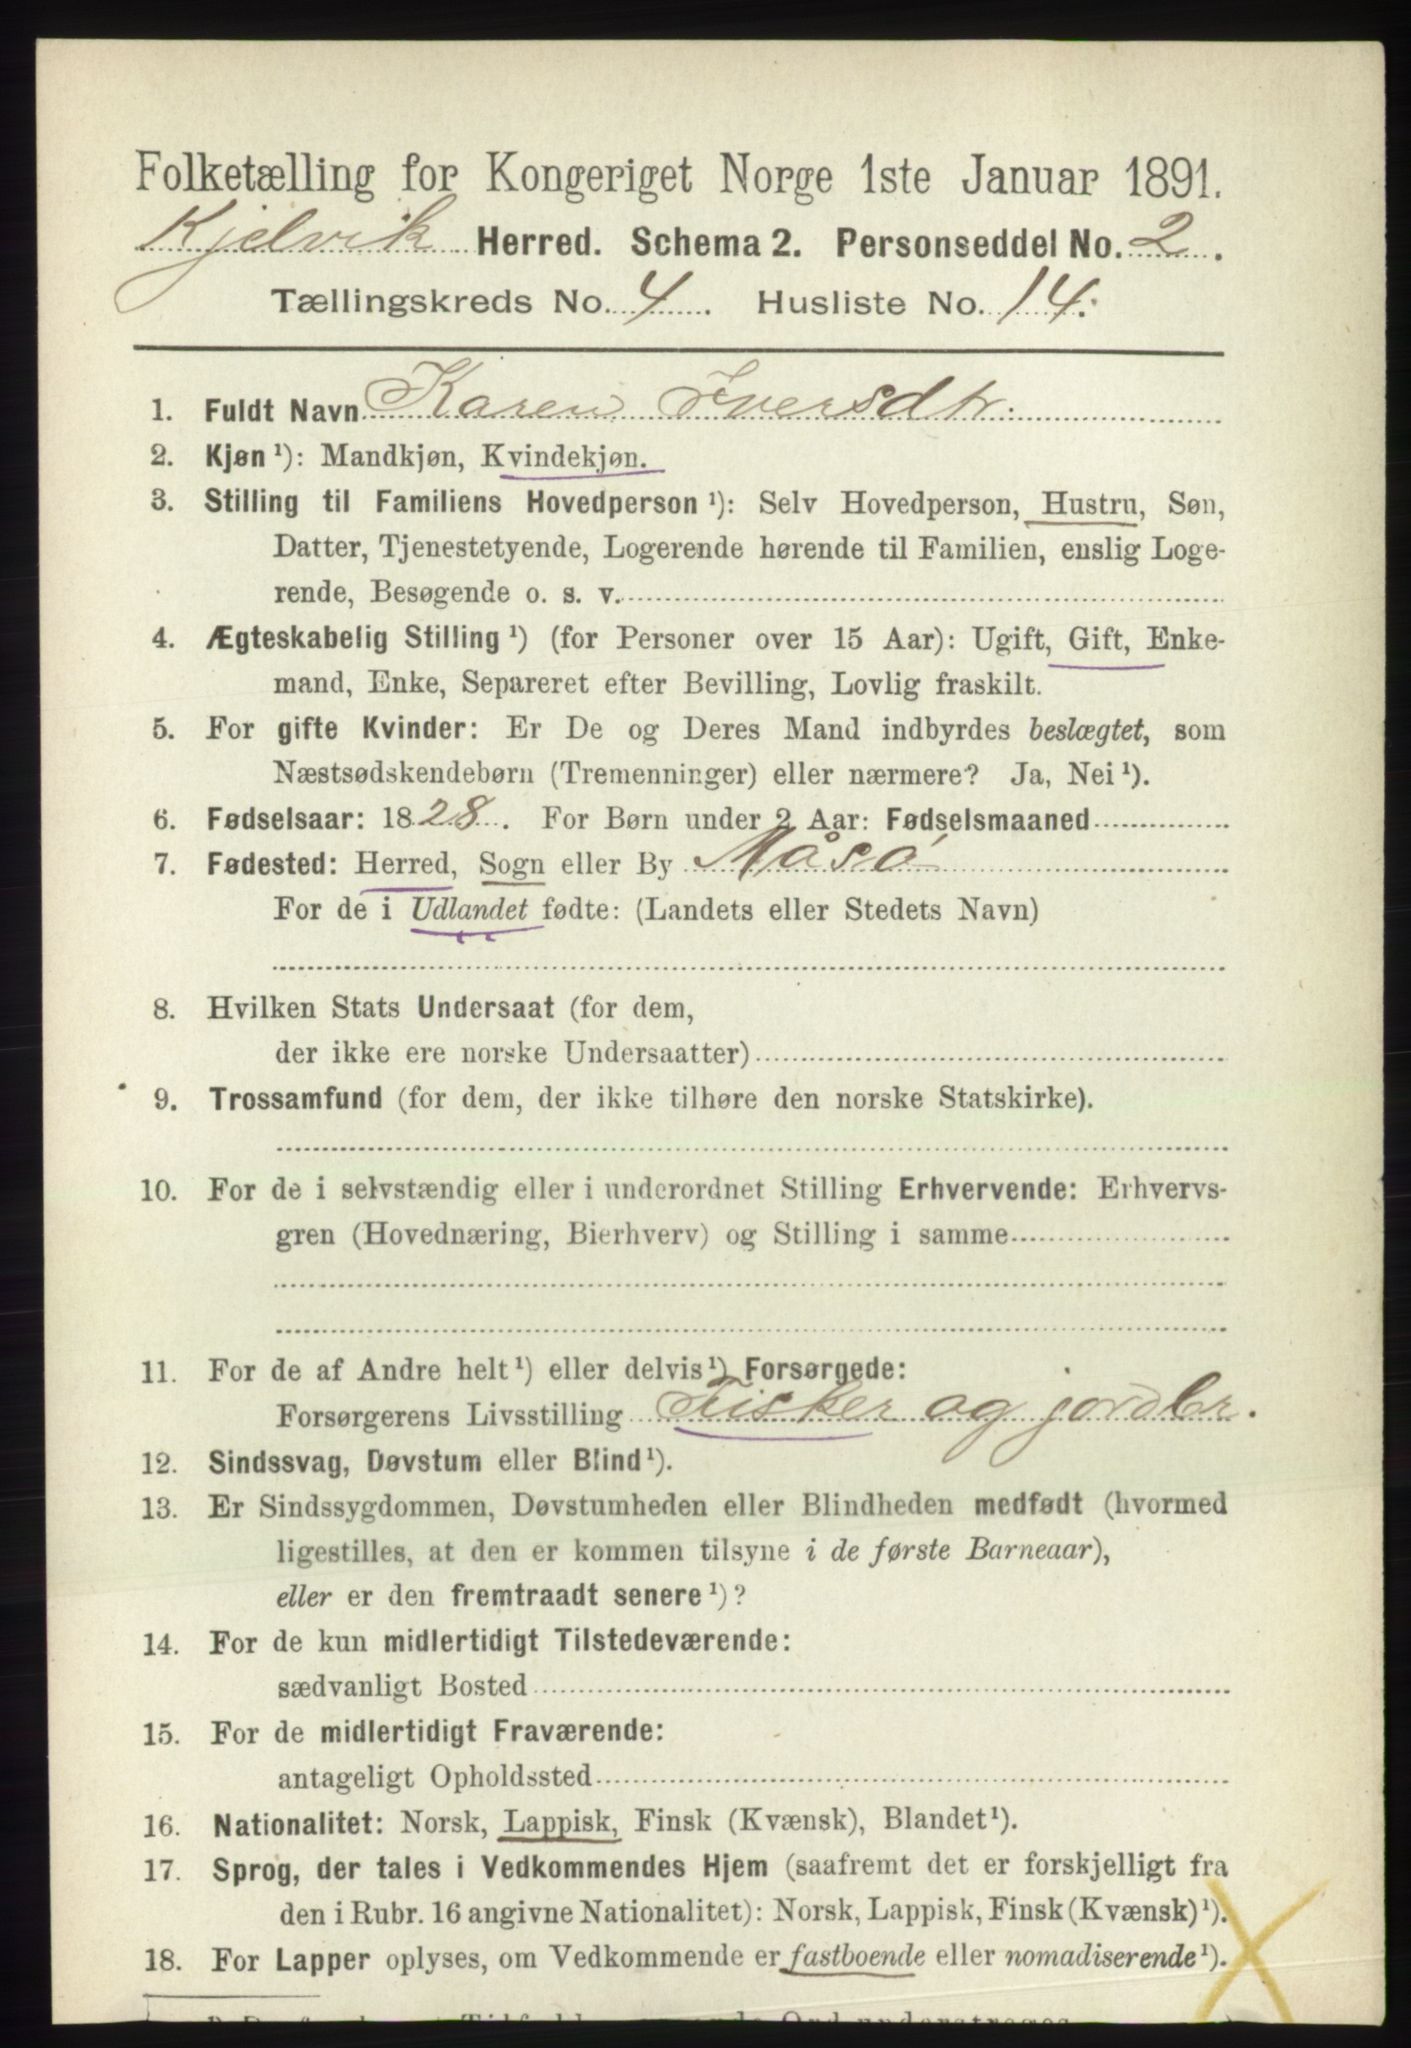 Folketælling for Kongeriget Norge 1ste Januar 1891.
Kjelvik Herred. Schema 2. Personseddel No. 2.
Tællingskreds No. 4. Husliste No. 14.
1. Fuldt Navn Karen Iversdtr.
2. Kjøn ¹): Mandkjøn, Kvindekjøn.
3. Stilling til Familiens Hovedperson ¹): Selv Hovedperson, Hustru, Søn,
Datter, Tjenestetyende, Logerende hørende til Familien, enslig Loge-
rende, Besøgende o. s. v.
4. Ægteskabelig Stilling ¹) (for Personer over 15 Aar): Ugift, Gift, Enke-
mand, Enke, Separeret efter Bevilling, Lovlig fraskilt.
5. For gifte Kvinder: Er De og Deres Mand indbyrdes beslægtet, som
Næstsødskendebørn (Tremenninger) eller nærmere? Ja, Nei ¹).
6. Fødselsaar: 1828. For Børn under 2 Aar: Fødselsmaaned
7. Fødested: Herred, Sogn eller By Måsø
For de i Udlandet fødte: (Landets eller Stedets Navn)
8. Hvilken Stats Undersaat (for dem,
der ikke ere norske Undersaatter)
9. Trossamfund (for dem, der ikke tilhøre den norske Statskirke).
10. For de i selvstændig eller i underordnet Stilling Erhvervende: Erhvervs-
gren (Hovednæring, Bierhverv) og Stilling i samme
11. For de af Andre helt ¹) eller delvis ¹) Forsørgede:
Forsørgerens Livsstilling Fisker og jordbr.
12. Sindssvag, Døvstum eller Blind ¹).
13. Er Sindssygdommen, Døvstumheden eller Blindheden medfødt (hvormed
ligestilles, at den er kommen tilsyne i de første Barneaar),
eller er den fremtraadt senere ¹)?
14. For de kun midlertidigt Tilstedeværende:
sædvanligt Bosted
15. For de midlertidigt Fraværende:
antageligt Opholdssted
16. Nationalitet: Norsk, Lappisk, Finsk (Kvænsk), Blandet ¹).
17. Sprog, der tales i Vedkommendes Hjem (saafremt det er forskjelligt fra
den i Rubr. 16 angivne Nationalitet): Norsk, Lappisk, Finsk (Kvænsk) ¹).
18. For Lapper oplyses, om Vedkommende er fastboende eller nomadiserende ¹).